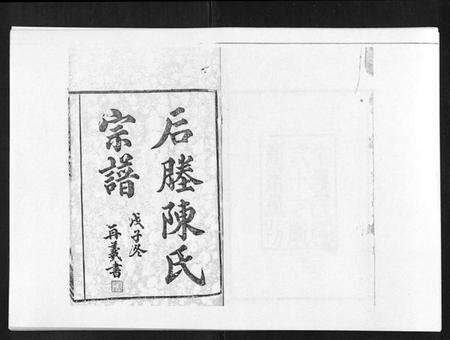 后塍陳氏
宗譜
戊子冬
再義書